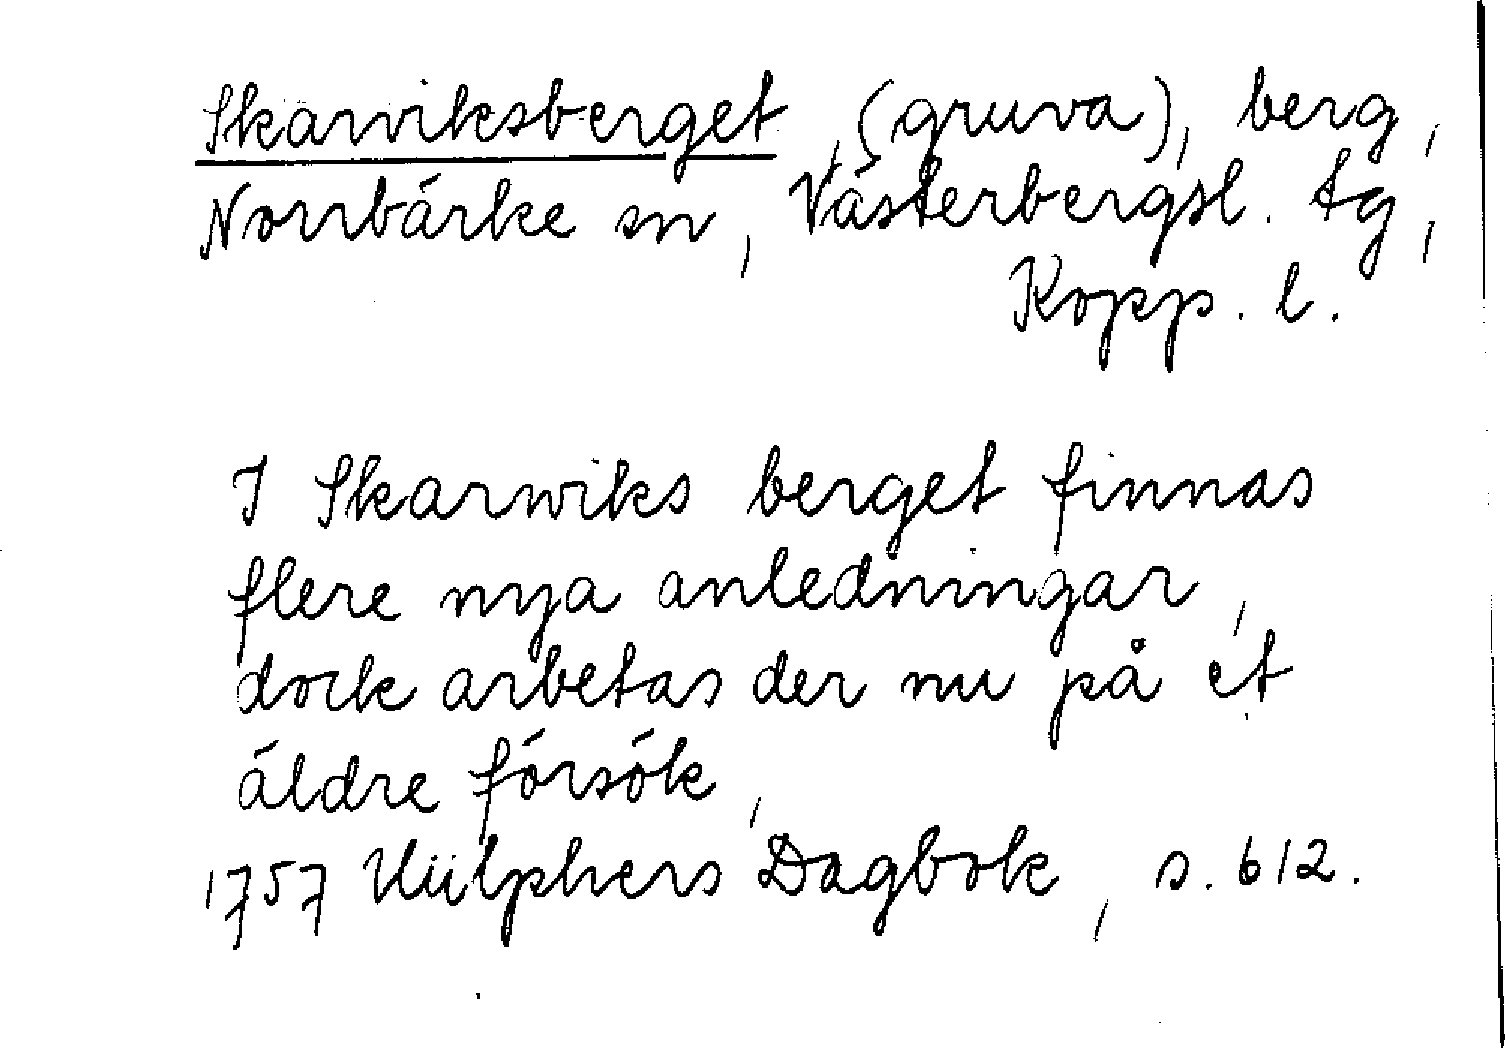 Skarviksberget, (gruva), berg,
Norrbärke sn, Västerbergsl. tg,
Kopp. l.
I Skarwiks berget finnas
flere nya anledningar,
dock arbetas der nu på et
äldre försök,
1757 Hülphers Dagbok, s. 612.